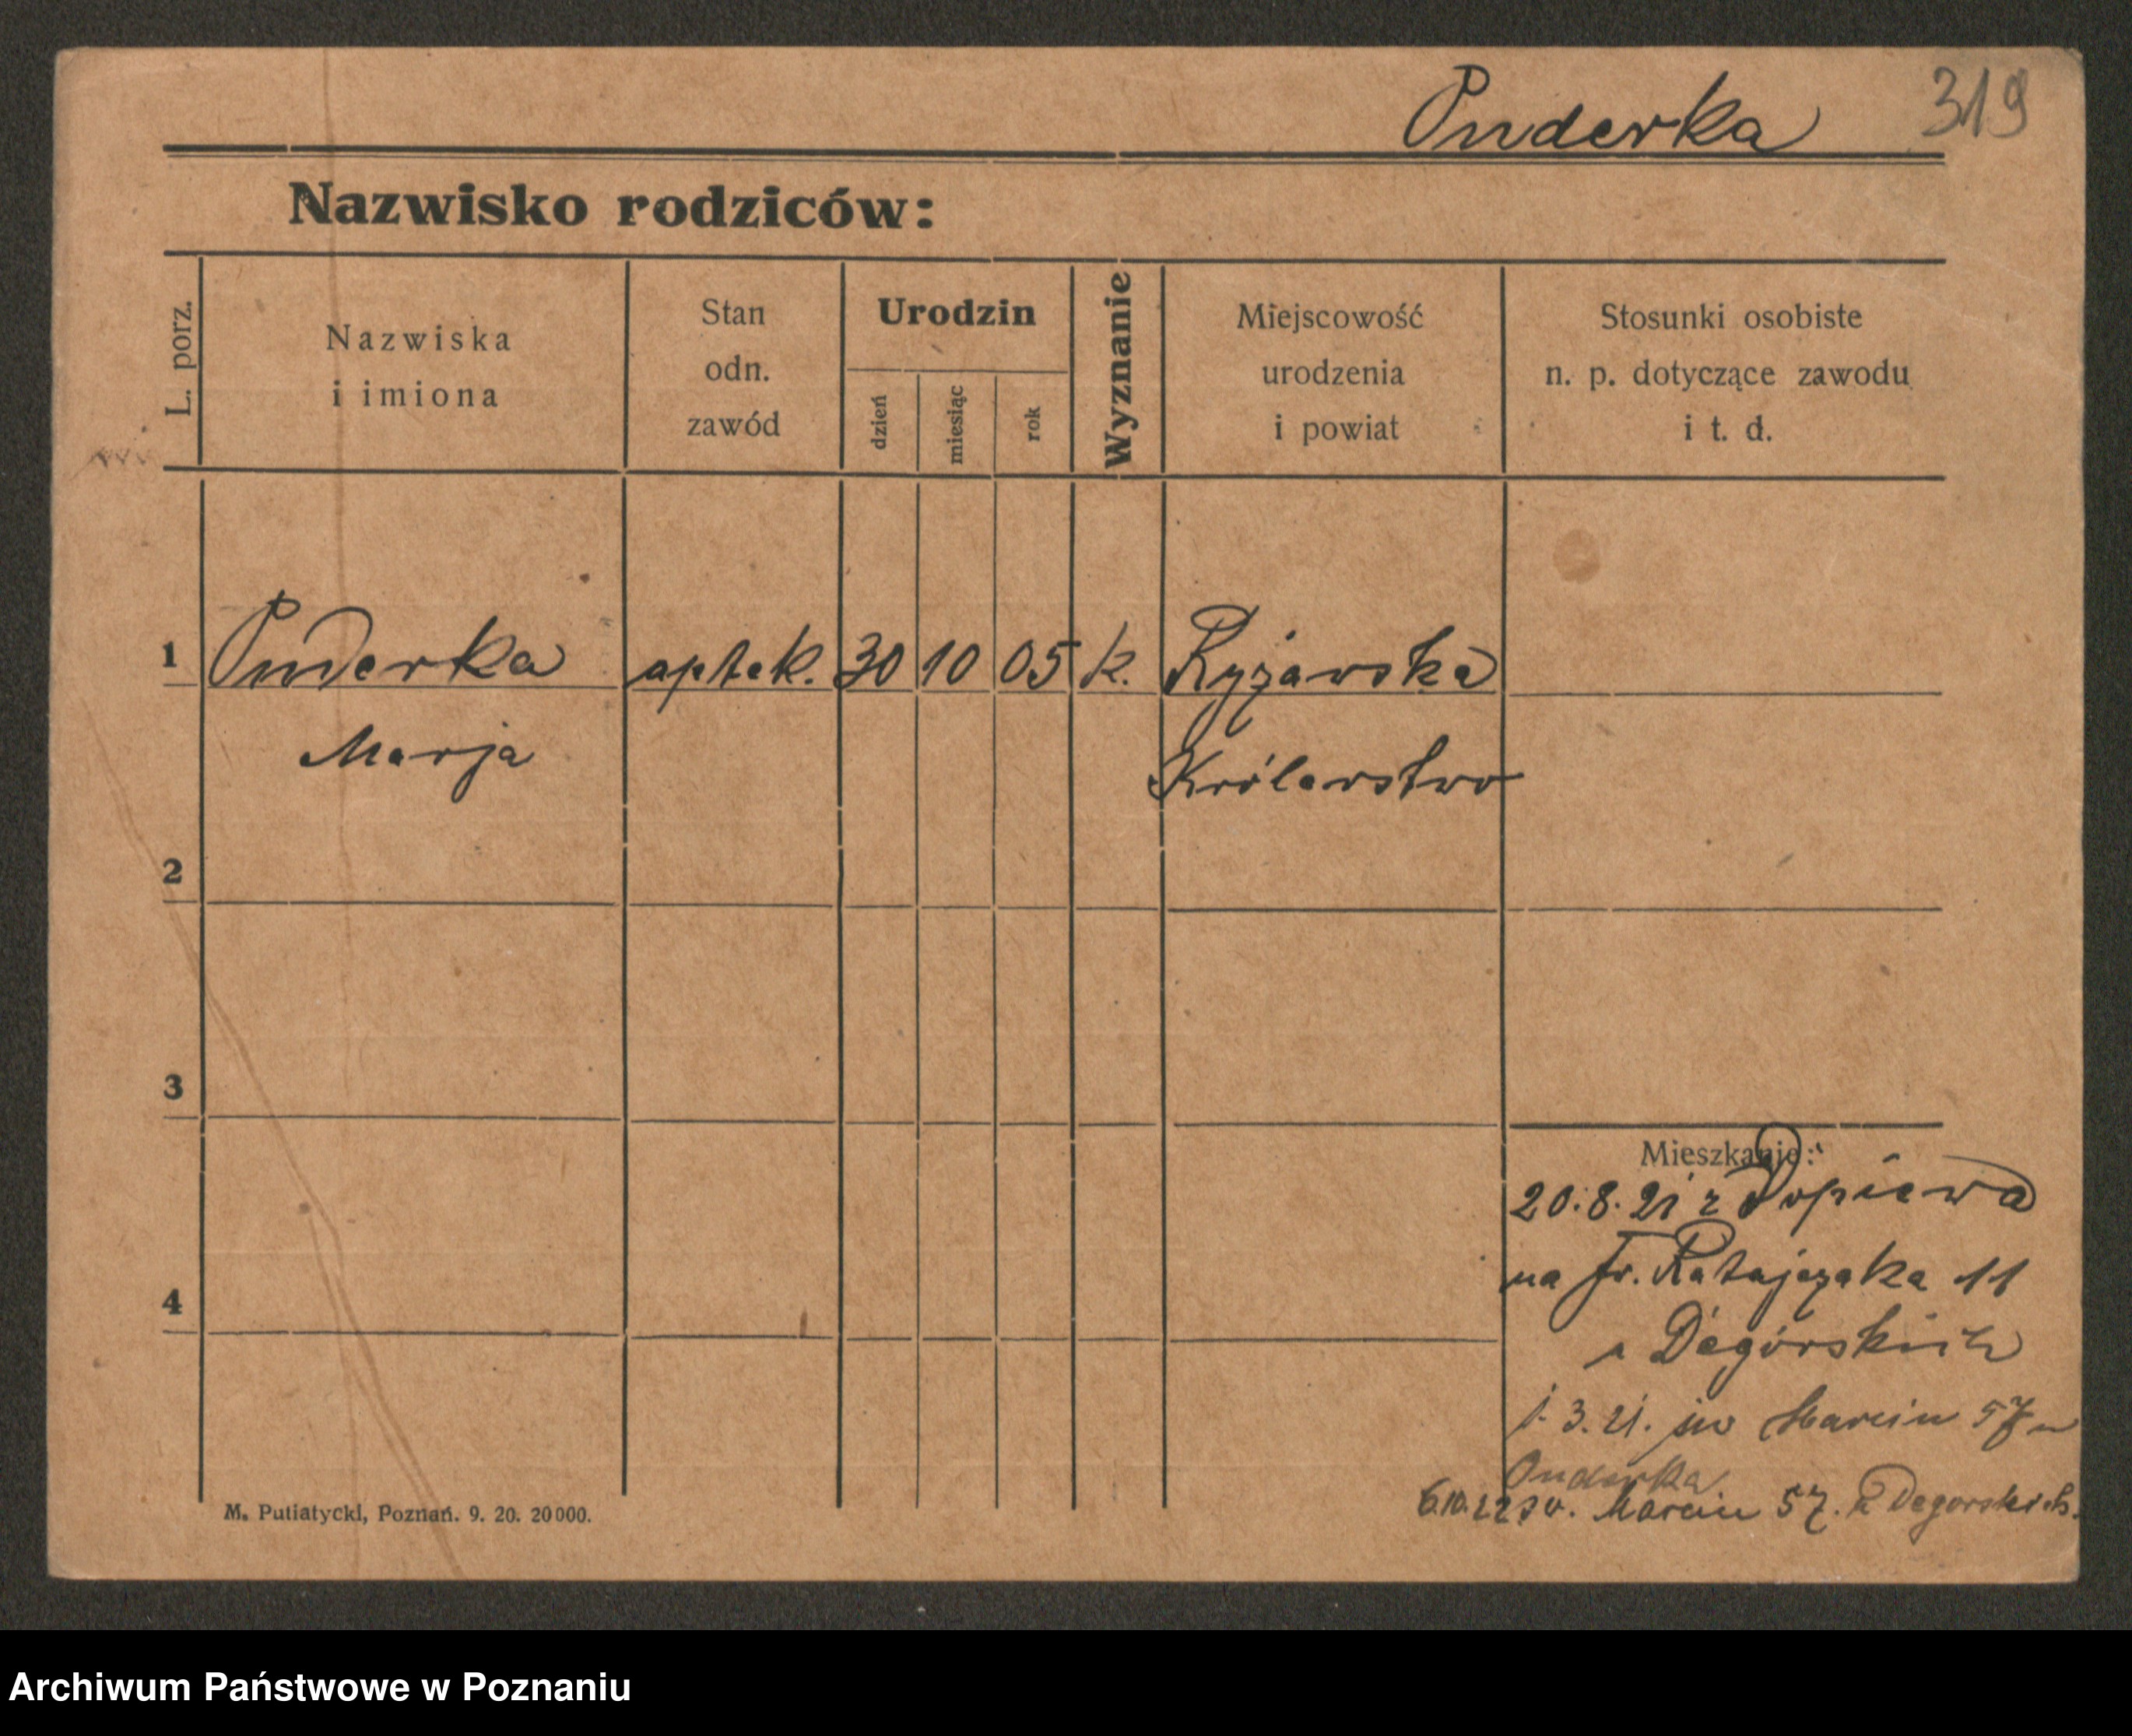 Onderka 319
Nazwisko rodziców:
L. porz.
Nazwiska
i imiona
Stan
odn.
zawód
Urodzin
dzień
miesiąc
rok
Wyznanie
Miejscowość
urodzenia
i powiat
Stosunki osobiste
n. p. dotyczące zawodu
i t. d.
1 Onderka aptek. 30 10 05 k. Ryżawska
Marja Królewstwo
2
3
4
Mieszkanie:
20.8.21 z Dopiewa
na Fr. Ratajczaka 11
Degórskich
1.3.21. św Marcin 57
Onderka
6.10.22 św. Marcin 57. Degorskich.
M. Putiatycki, Poznań. 9. 20. 20000.
Archiwum Państwowe w Poznaniu